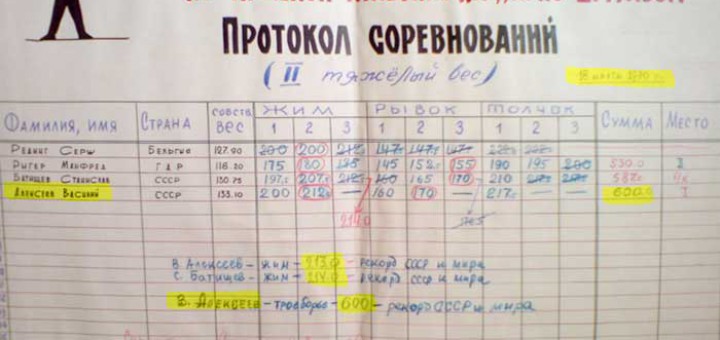 ПРОТОКОЛ СОРЕВНОВАНИЙ
(II тяжёлый вес)
18 марта 1970 г.
ФАМИЛИЯ, ИМЯ СТРАНА СОБСТВ. ВЕС ЖИМ 1 2 3 РЫВОК 1 2 3 ТОЛЧОК 1 2 3 СУММА МЕСТО
Рединг Серж Бельгия 127.90 200 200 147.5 147.5 147.5
Ригер Манфред ГДР 118.20 175 180 185 145 152.5 155 190 195 200 530.0
Батищев Станислав СССР 197.5 207.5 160 165 170 210 217.5 217.5
Алексеев Василий СССР 133.10 200 212.5 — 160 170 — 217.5 — 600.0 I
В. Алексеев – жим – 213.0 – рекорд СССР и мира
С. Батищев – жим – – рекорд СССР и мира
В. Алексеев – троеборье – 600 – рекорд СССР и мира